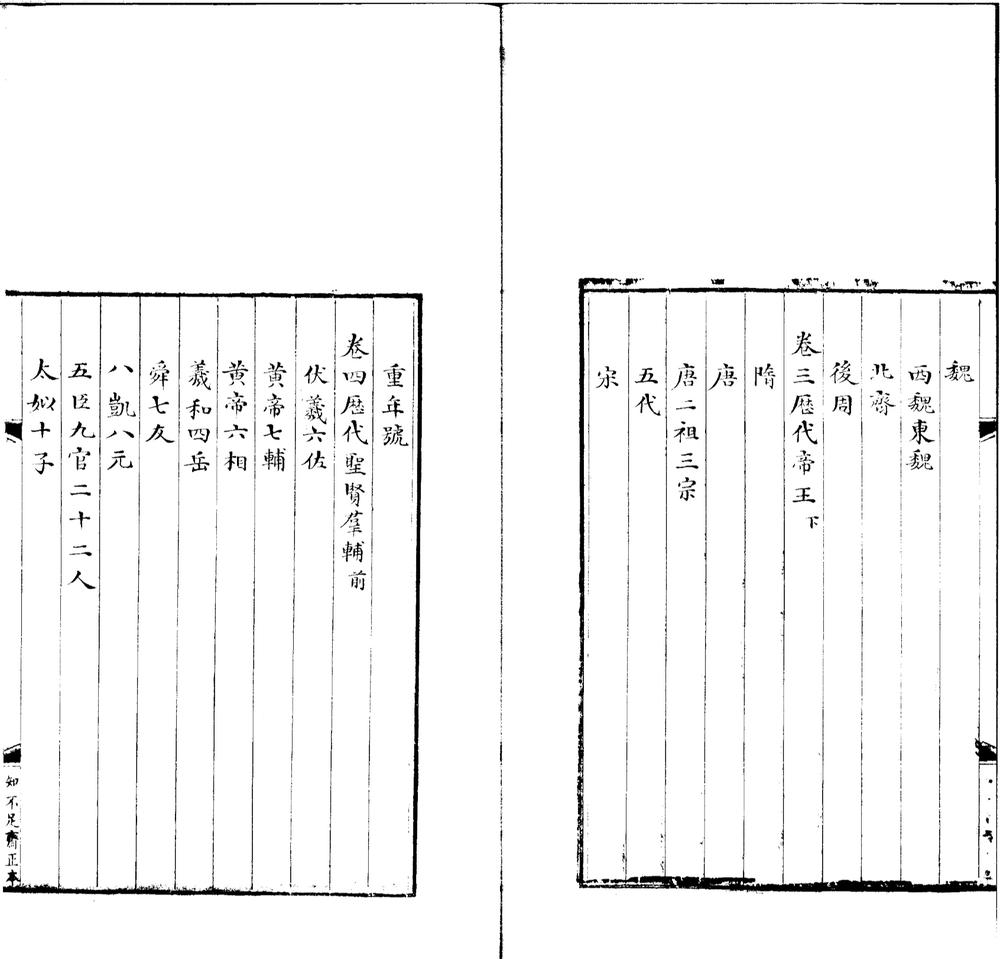 魏
西魏東魏
北齊
後周
卷三歷代帝王下
隋
唐
唐二祖三宗
五代
宋
重年號
卷四歷代聖賢羣輔前
伏羲六佐
黃帝七輔
黃帝六相
羲和四岳
舜七友
八凱八元
五臣九官二十二人
太姒十子
知不足齋正本